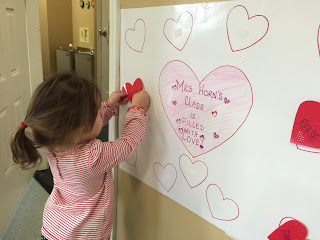 Mrs Horn's
Class
is
Filled
with
Love!